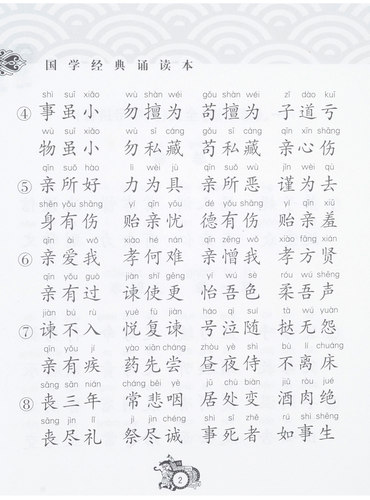 国学经典诵读本
shì suī xiǎo wù shàn wéi gǒu shàn wéi zǐ dào kuī
④事虽小 勿擅为 苟擅为 子道亏
wù suī xiǎo wù sī cáng gǒu sī cáng qīn xīn shāng
物虽小 勿私藏 苟私藏 亲心伤
qīn suǒ hào lì wèi jù qīn suǒ wù jǐn wèi qù
⑤亲所好 力为具 亲所恶 谨为去
shēn yǒu shāng yí qīn yōu dé yǒu shāng yí qīn xiū
身有伤 贻亲忧 德有伤 贻亲羞
qīn ài wǒ xiào hé nán qīn zēng wǒ xiào fāng xián
⑥亲爱我 孝何难 亲憎我 孝方贤
qīn yǒu guò jiàn shǐ gēng yí wú sè róu wú shēng
亲有过 谏使更 怡吾色 柔吾声
jiàn bú rù yuè fù jiàn háo qì suí tà wú yuàn
⑦谏不入 悦复谏 号泣随 挞无怨
qīn yǒu jí yào xiān cháng zhòu yè shì bù lí chuáng
亲有疾 药先尝 昼夜侍 不离床
sāng sān nián cháng bēi yè jū chù biàn jiǔ ròu jué
⑧丧三年 常悲咽 居处变 酒肉绝
sāng jìn lǐ jì jìn chéng shì sǐ zhě rú shì shēng
丧尽礼 祭尽诚 事死者 如事生
2